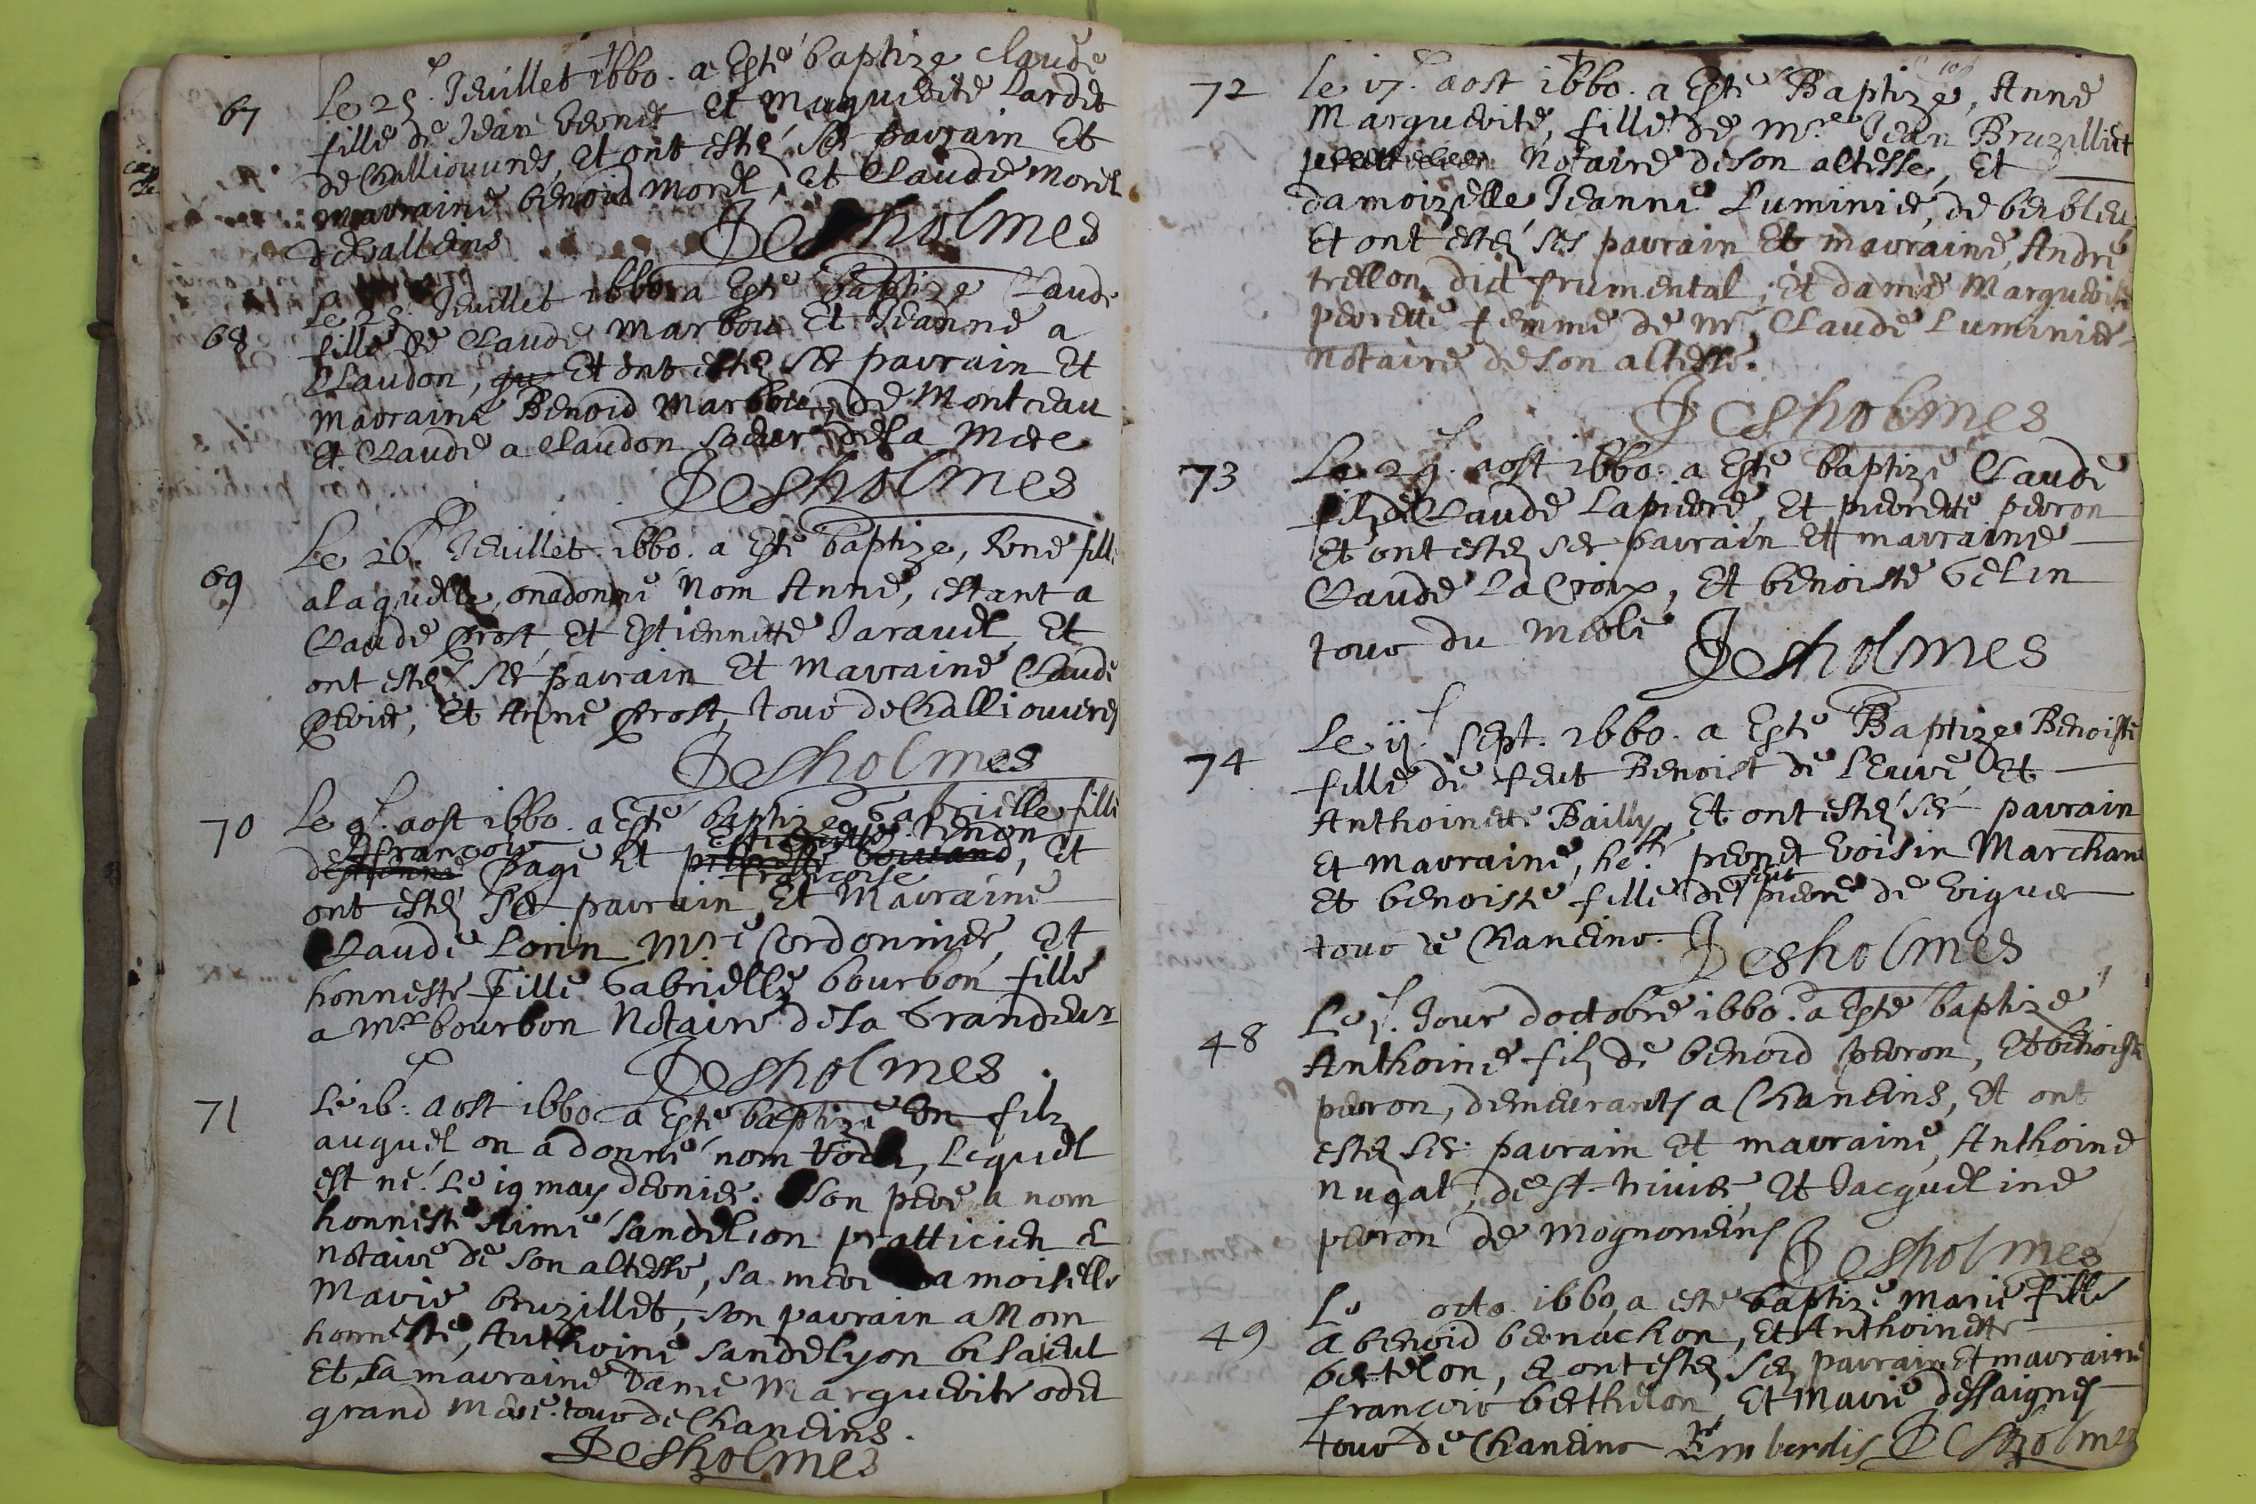 67 Le 25. Jeuillet 1660. a Esté baptize Claude
fille de Jean vernet Et Marguerite Lardet
de Challiouvres, Et ont estez ses parrain Et
marraine benoid morel, Et Claude morel
de valleins Desholmes
68 Le 25. Jeuillet 1660. a Esté baptize Claude
fille de Claude marbou Et Jeanne a
Claudon, Et ont estez ses parrain Et
marraine Benoid marbou, de Monteau
Et Claude a Claudon soeur de la mere
Desholmes
69 Le 26. Jeuillet 1660. a Esté baptize, une fille
a laquelle, on a donné Nom Anne, estant a
Claude Prost, Et Estiennette Jaraud, Et
ont estez ses parrain Et Marraine Claude
Et Anne Prost, tous de Challiouvres
Desholmes
70 Le 9. aost 1660. a Esté baptize Gabrielle fille
francois Estiennette tenon
Pagé Et Et
francoise
ont estez Ses parrain Et Marraine
Claude Lorin Mre Cordonnier, Et
honneste fille Gabrielle bourbon fille
a Mre bourbon Notaire de sa Grandeur
Desholmes
71 Le 16. aost 1660 a Esté baptizé un filz
auquel on a donné nom, Lequel
est né Le 19 may dernier. son pere a nom
honneste Aimé Sandelion pratticien &
notaire de son altesse, sa mere damoiselle
Marie bruzillet, son parrain a Nom
honneste, Anthoine Sandelyon bisaieul
Et sa marraine Dame Marguerite odet
grand Mere tous de Chaneins.
Desholmes
72 Le 17. aost 1660. a Esté Baptize, Anne
Marguerite, fille de Mre Jean Bruzillet
Notaire de son altesse, Et
damoizelle Jeanne Luminier, de berbleu
Et ont estez ses parrain Et marraine, André
trellon dit frumental, Et dame Marguerite
perrette femme de mr Claude Luminier
Notaire de son altesse.
Desholmes
73 Le 29. aost 1660. a Esté baptizé Claude
filz de Claude Lapierre, Et pierrette perron
Et ont estez ses parrain Et marraine
Claude La Croix, Et benoiste Gelin
tous du mesle Desholmes
74 Le ij. Sept. 1660. a Esté Baptize Benoiste
fille de feut Benoist de Leuve Et
Anthoinette Bailly, Et ont estez ses parrain
Et Marraine, hete pernet voisin Marchant
Et benoiste fille de feut pierre de vigues
tous de Chaneins. Desholmes
48 Le j. Jour doctobre 1660. a Esté baptizé
Anthoine filz de benoid perron, Et benoiste
perron, demeurants a Chaneins, Et ont
estez ses parrain Et marraine, Anthoine
nugat, de st trivier, Et Jacqueline
perron de Mogneneins Desholmes
49 Le octo. 1660, a esté baptizé marie fille
a benoid bernachon, Et Anthoinette
bertelon, & ont estez ses parrain Et marraine
francois berthelon Et Marie dessaignes
tous de Chaneins Desholmes